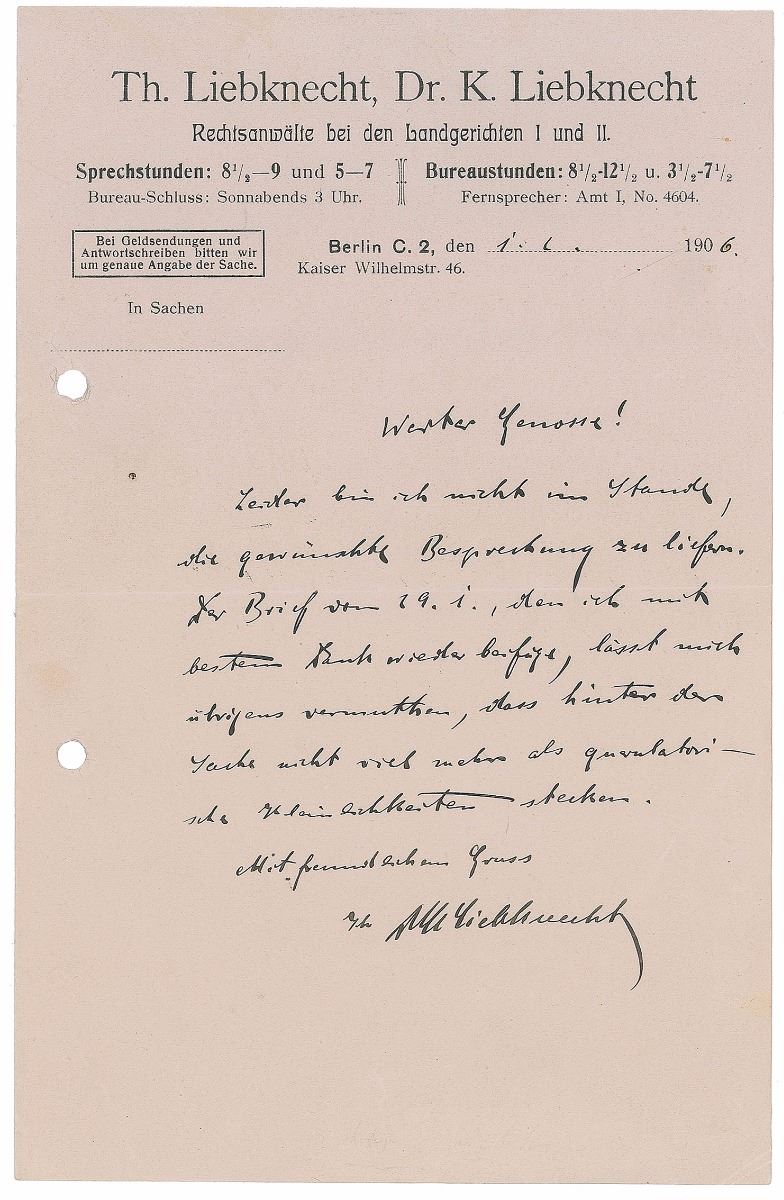 Th. Liebknecht, Dr. K. Liebknecht
Rechtsanwälte bei den Landgerichten I und II.
Sprechstunden: 8 1/2—9 und 5—7
Bureau-Schluss: Sonnabends 3 Uhr.
Bureaustunden: 8 1/2-12 1/2 u. 3 1/2-7 1/2
Fernsprecher: Amt I, No. 4604.
Bei Geldsendungen und
Antwortschreiben bitten wir
um genaue Angabe der Sache.
Berlin C. 2, den 1. 1906.
Kaiser Wilhelmstr. 46.
In Sachen
Werter Genosse!
Leider bin ich nicht im Stande,
die gewünschte Besprechung zu liefern.
Der Brief vom 29. 1., den ich mit
bestem Dank wieder beifüge, lässt mich
übrigens vermuthen, dass hinter der
Sache nicht viel mehr als querulatori-
sche Kleinlichkeiten stecken.
Mit freundlichem Gruss
Ihr Liebknecht